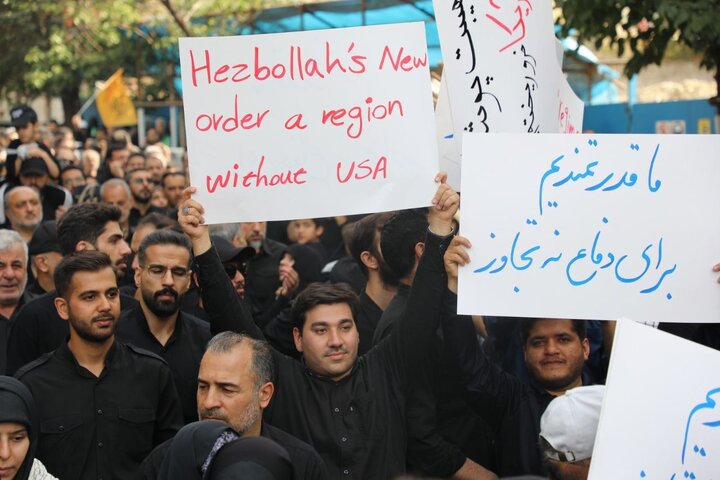 Hezbollah's New
order a region
without USA
ما قدرتمندیم
برای دفاع نه تجاوز